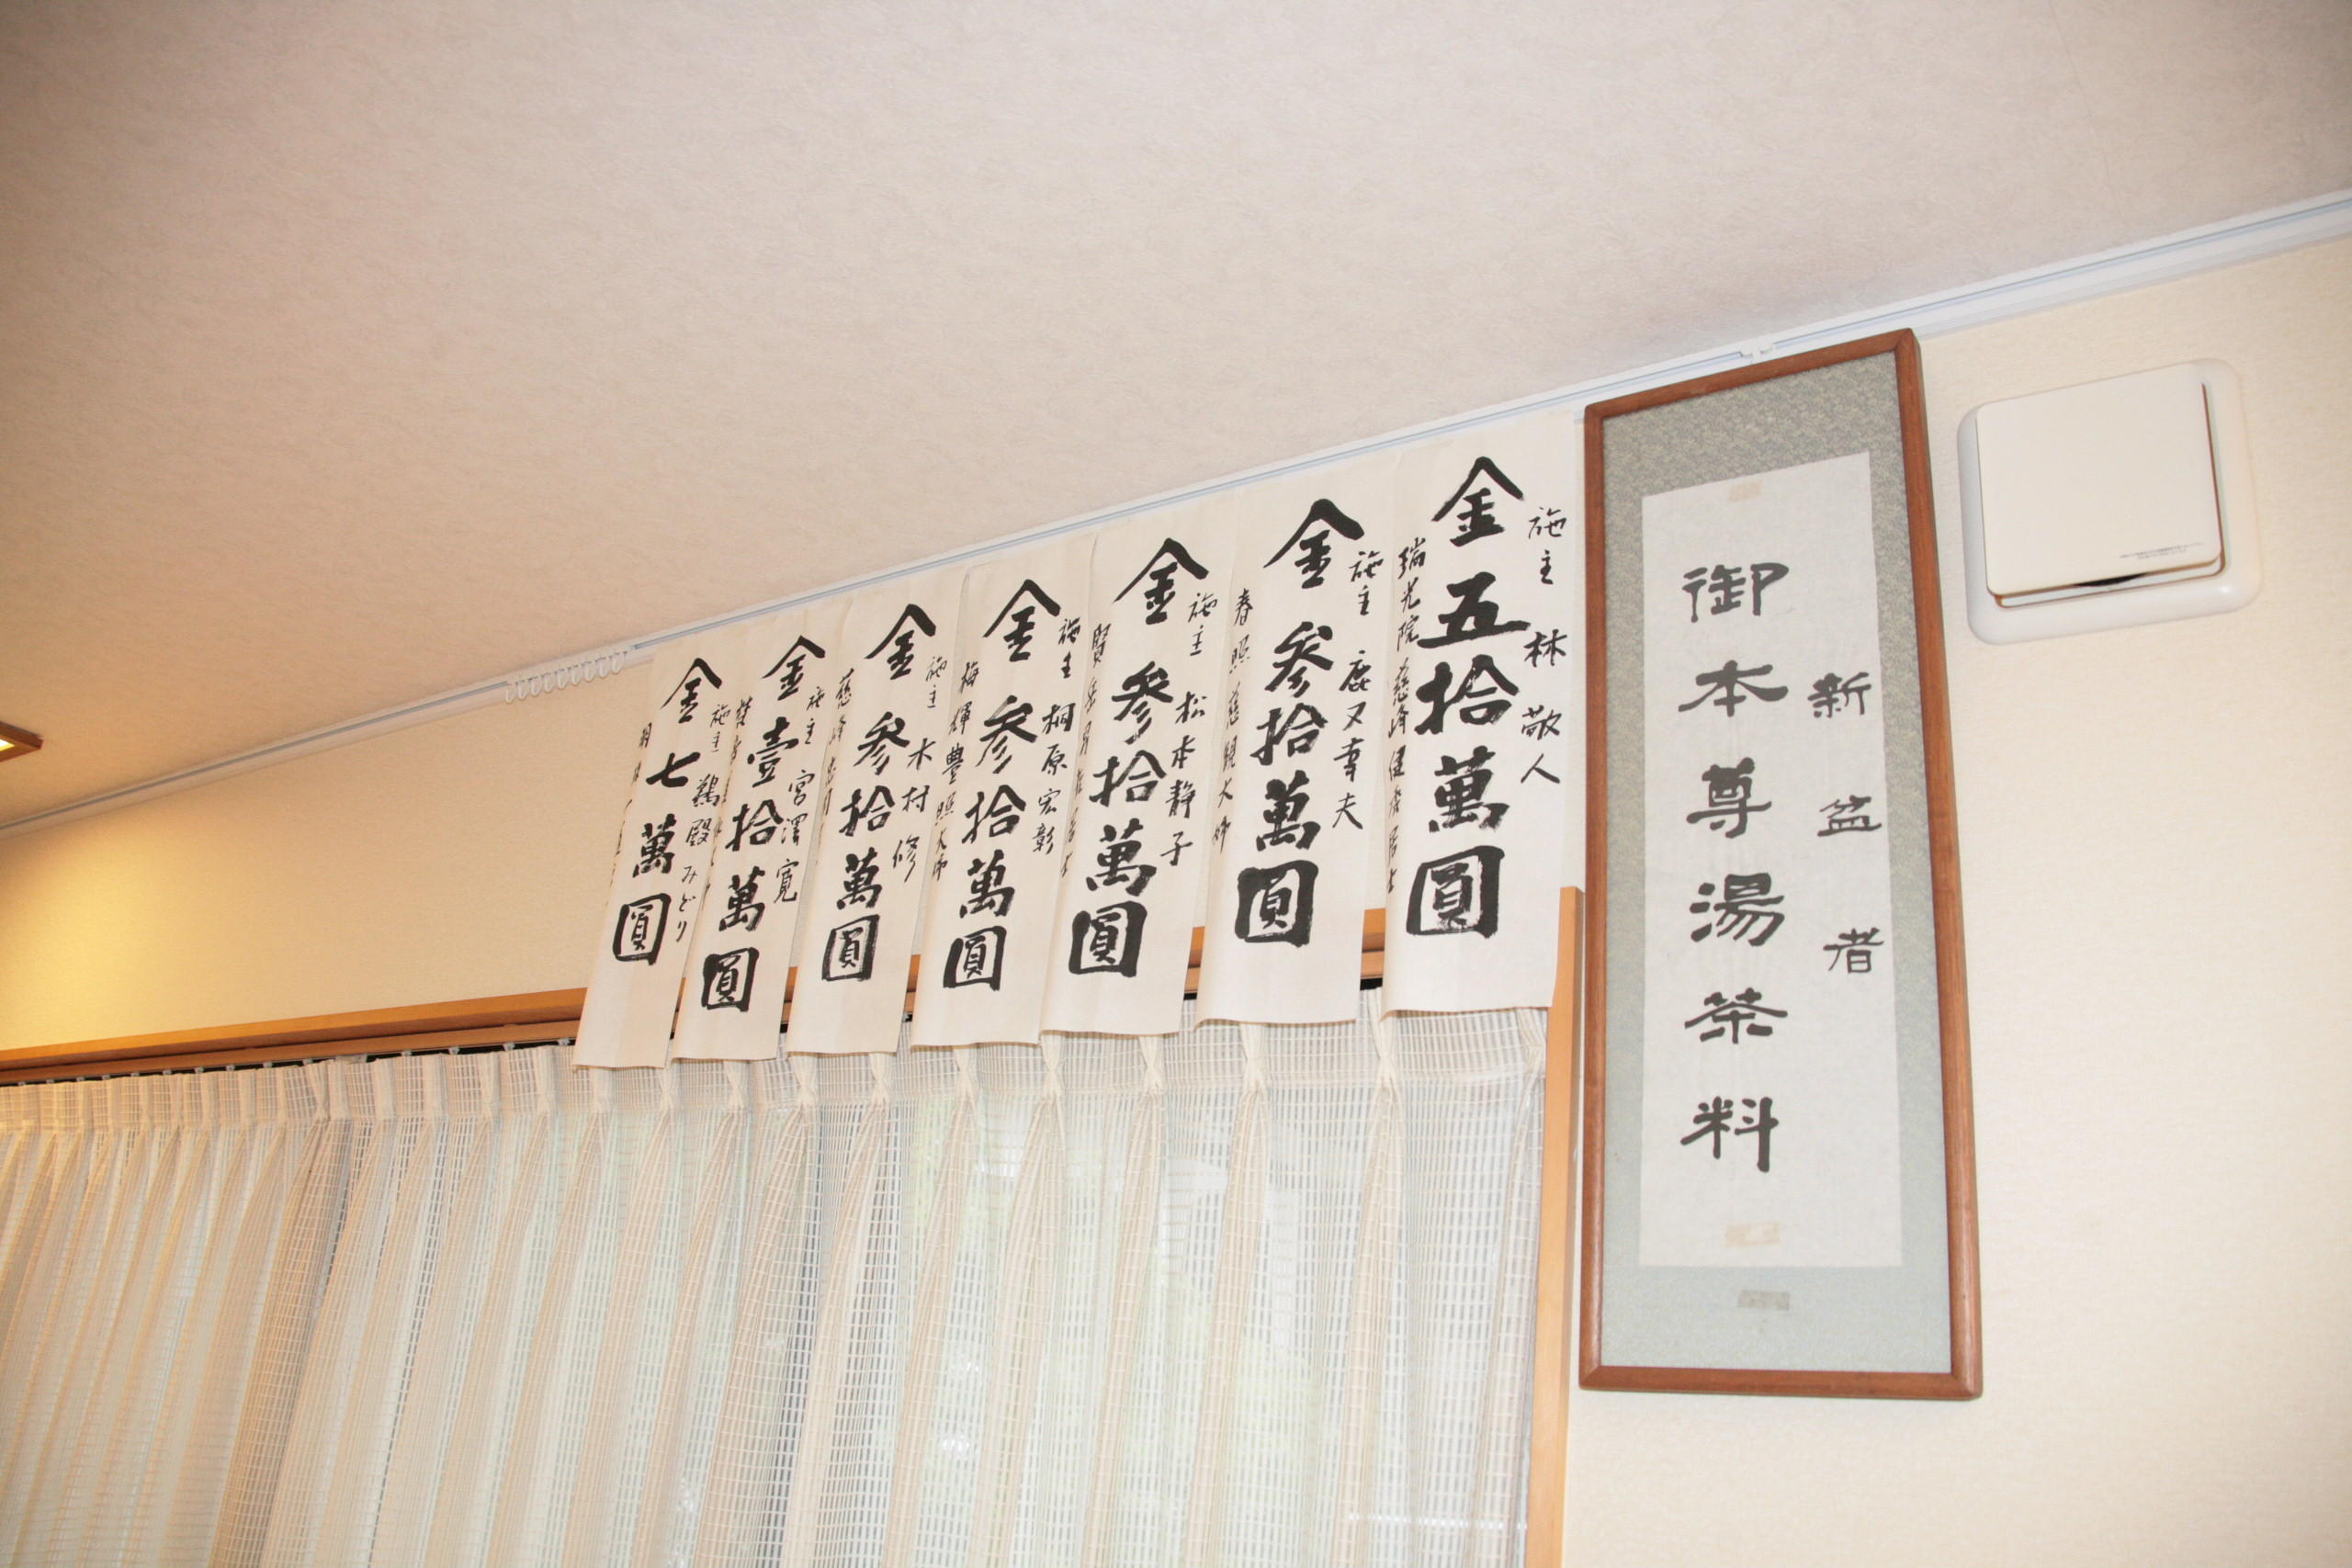 新盆者
御本尊湯茶料
施主 林 敬人
金五拾萬圓
瑞光院慈峰
施主 鹿又幸夫
金参拾萬圓
春照慈観大姉
施主 松本静子
金参拾萬圓
施主 桐原宏彰
金参拾萬圓
梅輝豊照大姉
施主 木村 修
金参拾萬圓
施主 宮澤 寛
金壹拾萬圓
施主 鵜殿みどり
金七萬圓